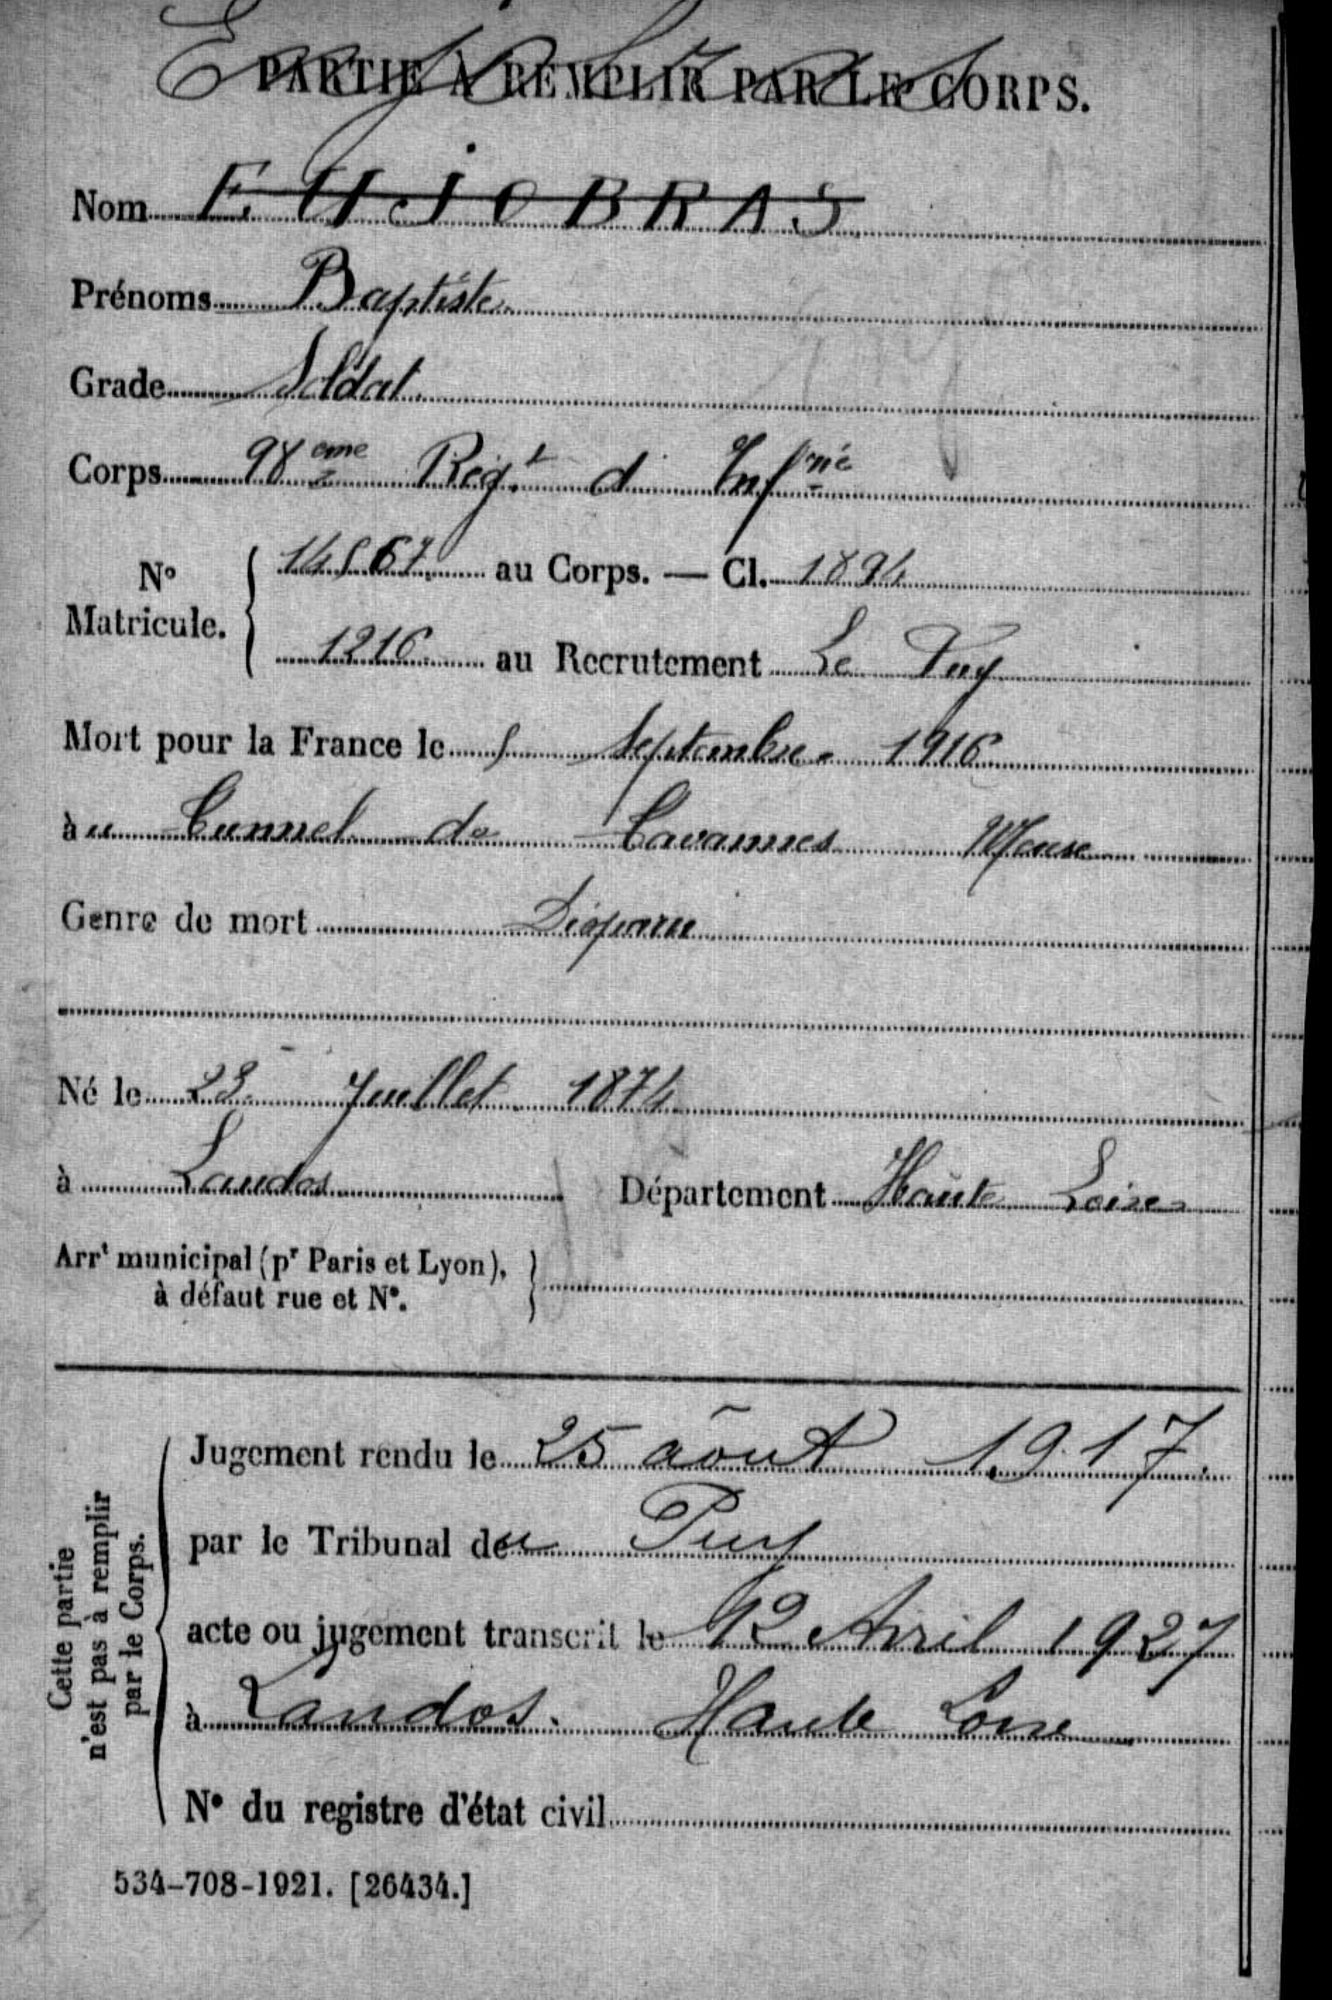 PARTIE À REMPLIR PAR LE CORPS.
Nom EUJOBRAS
Prénoms Baptiste
Grade Soldat
Corps 98eme Regt d Infrie
No Matricule. 14567 au Corps. — Cl. 1894
1216 au Recrutement Le Puy
Mort pour la France le 5 Septembre 1916
au Tunnel de Tavannes Meuse
Genre de mort Disparu
Né le 23 Juillet 1874
à Landos Département Haute Loire
Arrt municipal (pr Paris et Lyon),
à défaut rue et No.
Cette partie
n'est pas à remplir
par le Corps.
Jugement rendu le 25 août 1917.
par le Tribunal de u Puy
acte ou jugement transcrit le 12 Avril 1927
à Landos. Haute Loire
No du registre d'état civil
534-708-1921. [26434.]